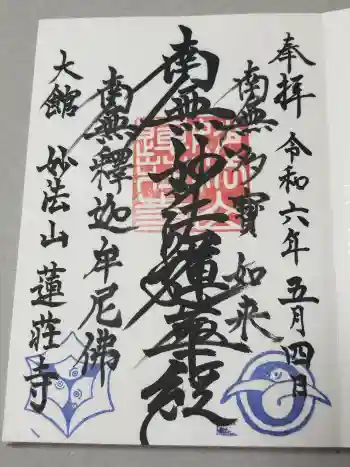 奉拝 令和六年五月四日
南無多寶如来
南無妙法蓮華経
南無釋迦牟尼佛
大館 妙法山 蓮荘寺